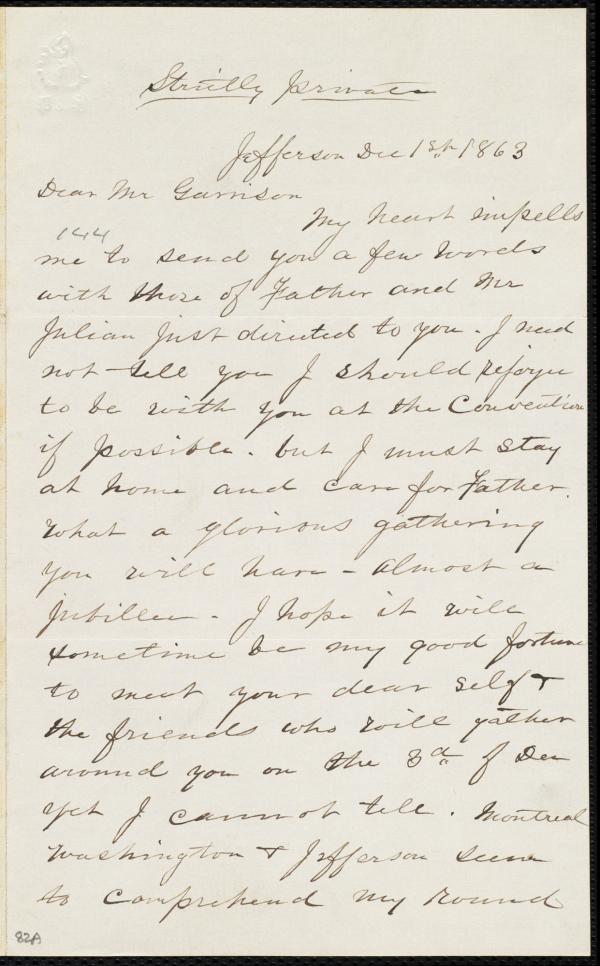 Strictly private
Jefferson Dec 1st 1863
Dear Mr Garrison
My heart impells
144
me to send you a few words
with those of Father and Mr
Julian just directed to you. I need
not tell you I should rejoyce
to be with you at the Convention
if possible. but I must stay
at home and care for Father.
What a glorious gathering
you will have - almost a
Jubillee - I hope it will
sometime be my good fortune
to meet your dear self &
the friends who will gather
around you on the 3d of Dec
yet I cannot tell. Montreal
Washington & Jefferson seem
to comprehend my round
82A